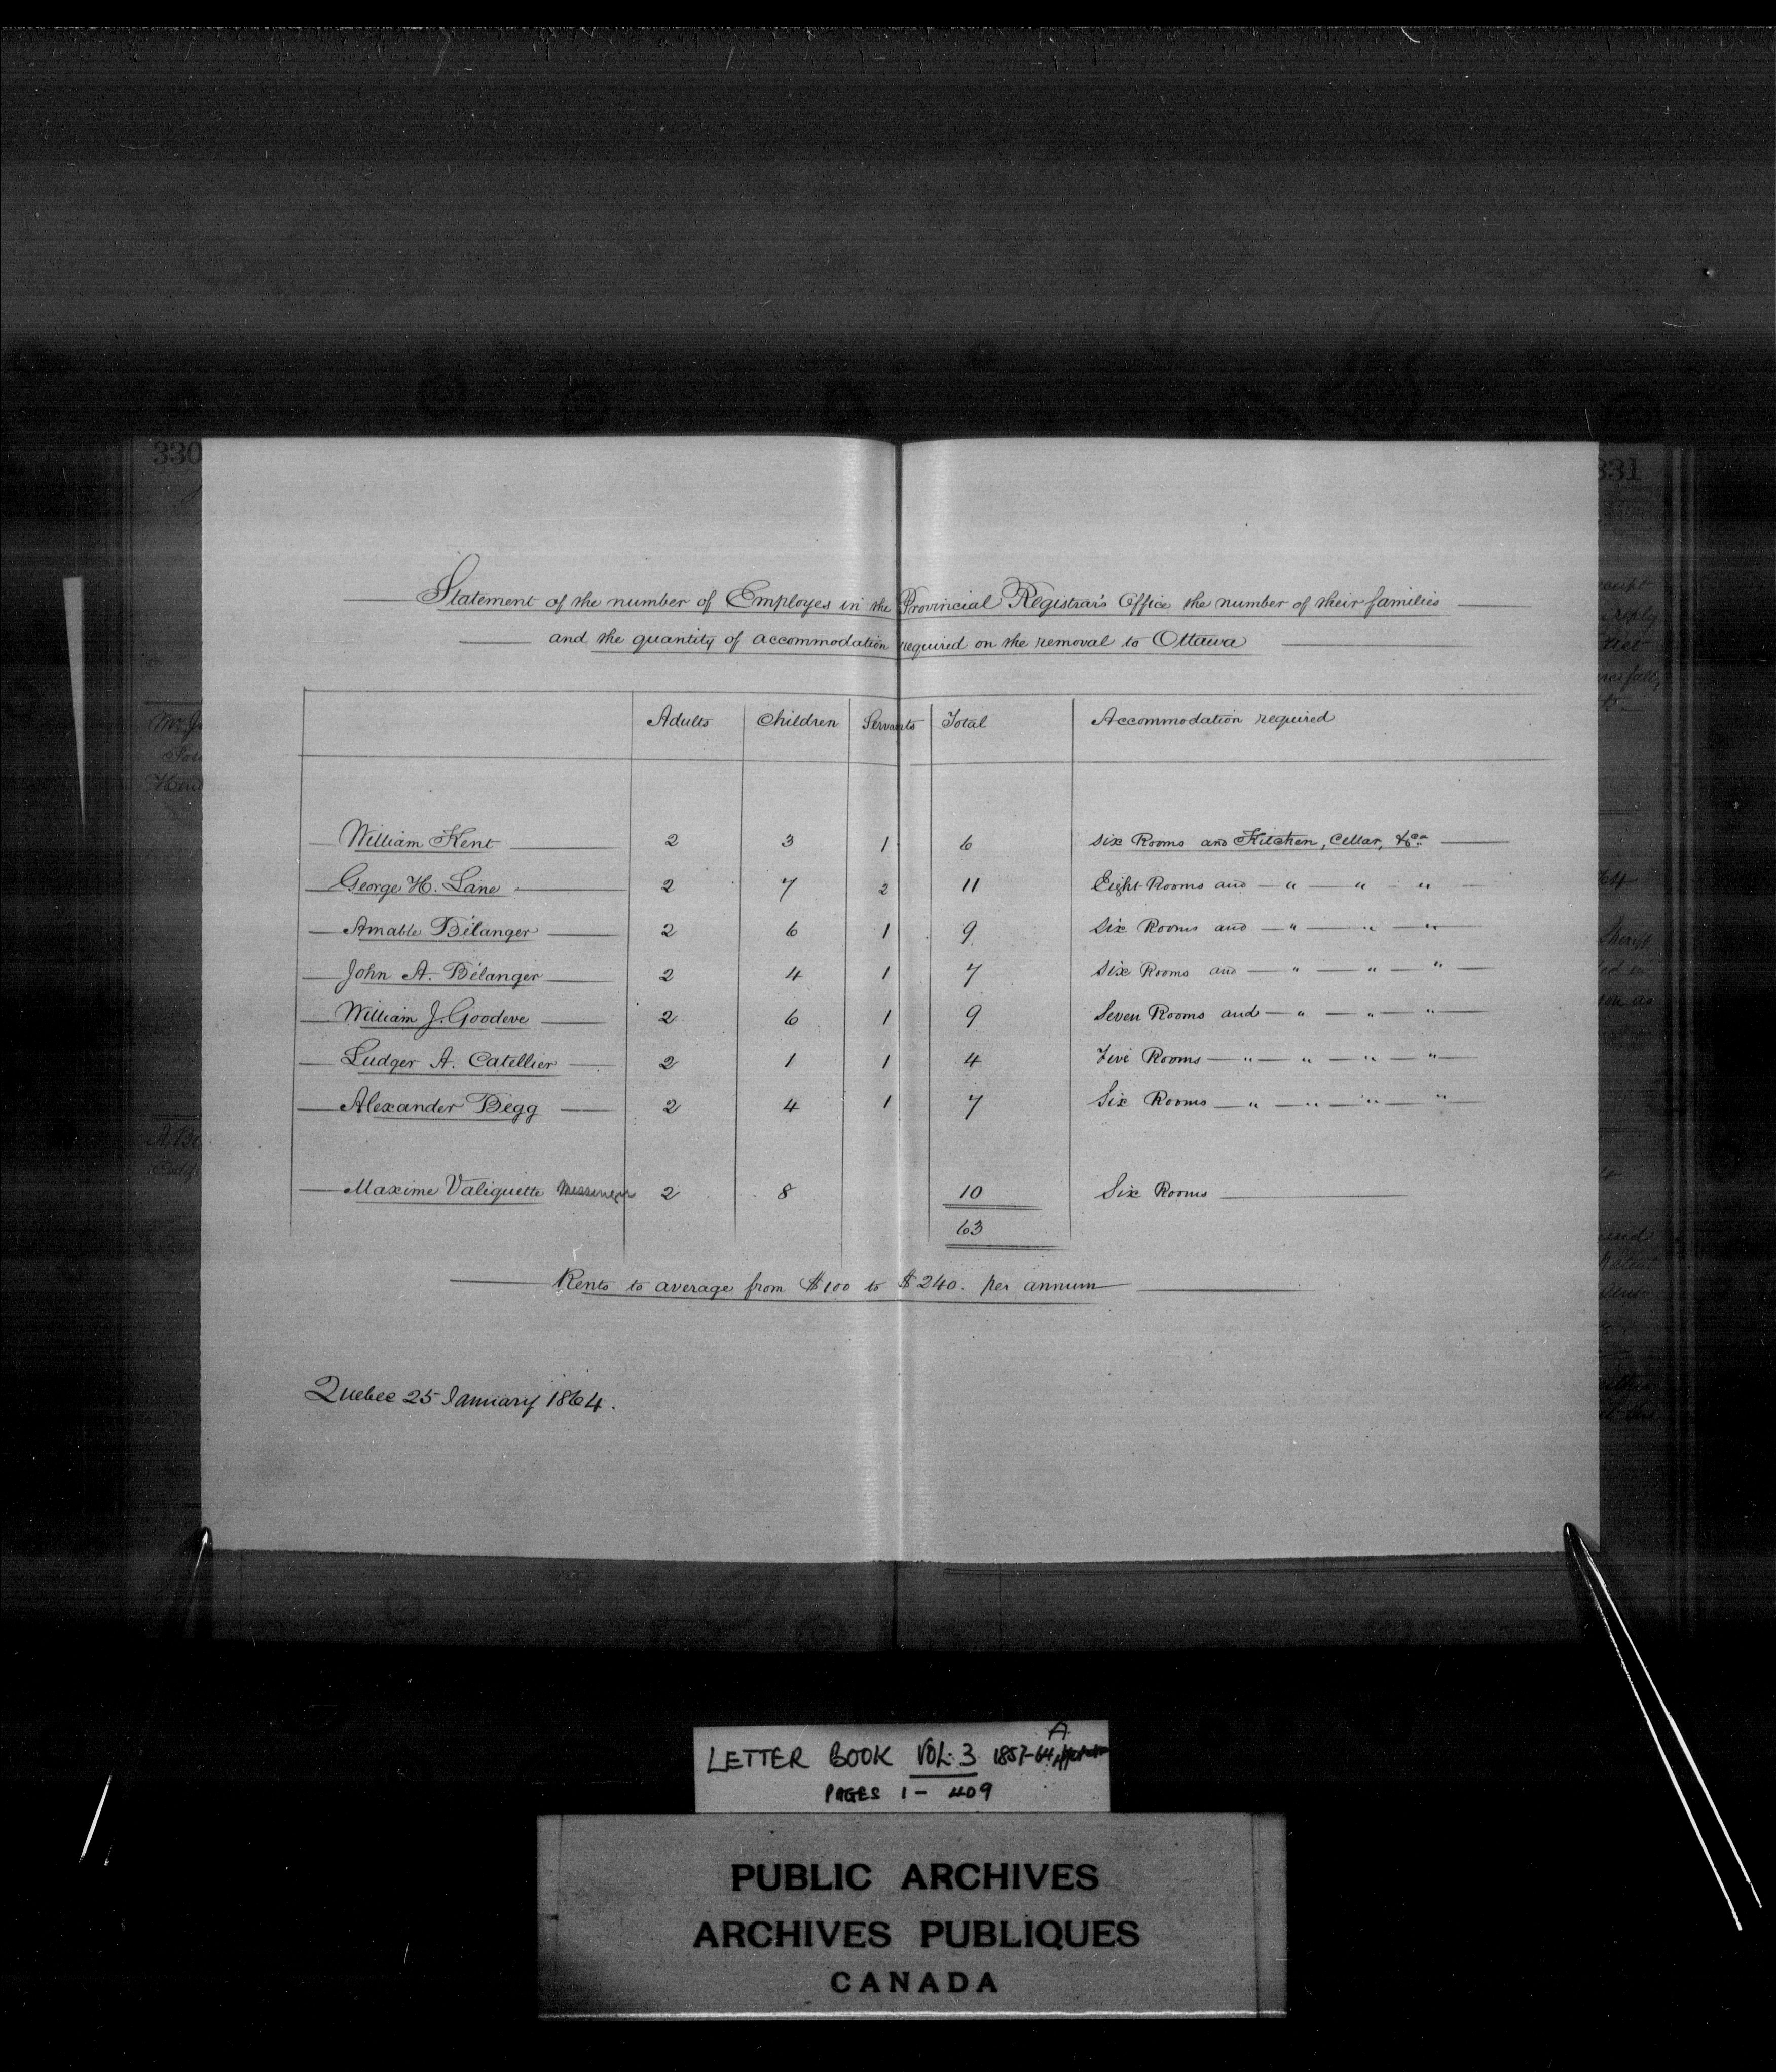 330
331
Statement of the number of Employes in the Provincial Registrar's Office the number of their families
and the quantity of accommodation required on the removal to Ottawa
Adults Children Servants Total Accommodation required
William Kent 2 3 1 6 Six Rooms and Kitchen, Cellar, &ca
George H. Lane 2 7 2 11 Eight Rooms and — " — " — "
Amable Bélanger 2 6 1 9 Six Rooms and — " — " — "
John A. Bélanger 2 4 1 7 Six Rooms and — " — " — "
William J. Goodeve 2 6 1 9 Seven Rooms and — " — " — "
Ludger A. Catellier 2 1 1 4 Five Rooms — " — " — " — "
Alexander Begg 2 4 1 7 Six Rooms — " — " — " — "
Maxime Valiquette Messenger 2 8 10 Six Rooms
63
Rents to average from $100 to $240. per annum
Quebec 25 January 1864.
LETTER BOOK VOL. 3 1857-64 A
PAGES 1 - 409
PUBLIC ARCHIVES
ARCHIVES PUBLIQUES
CANADA